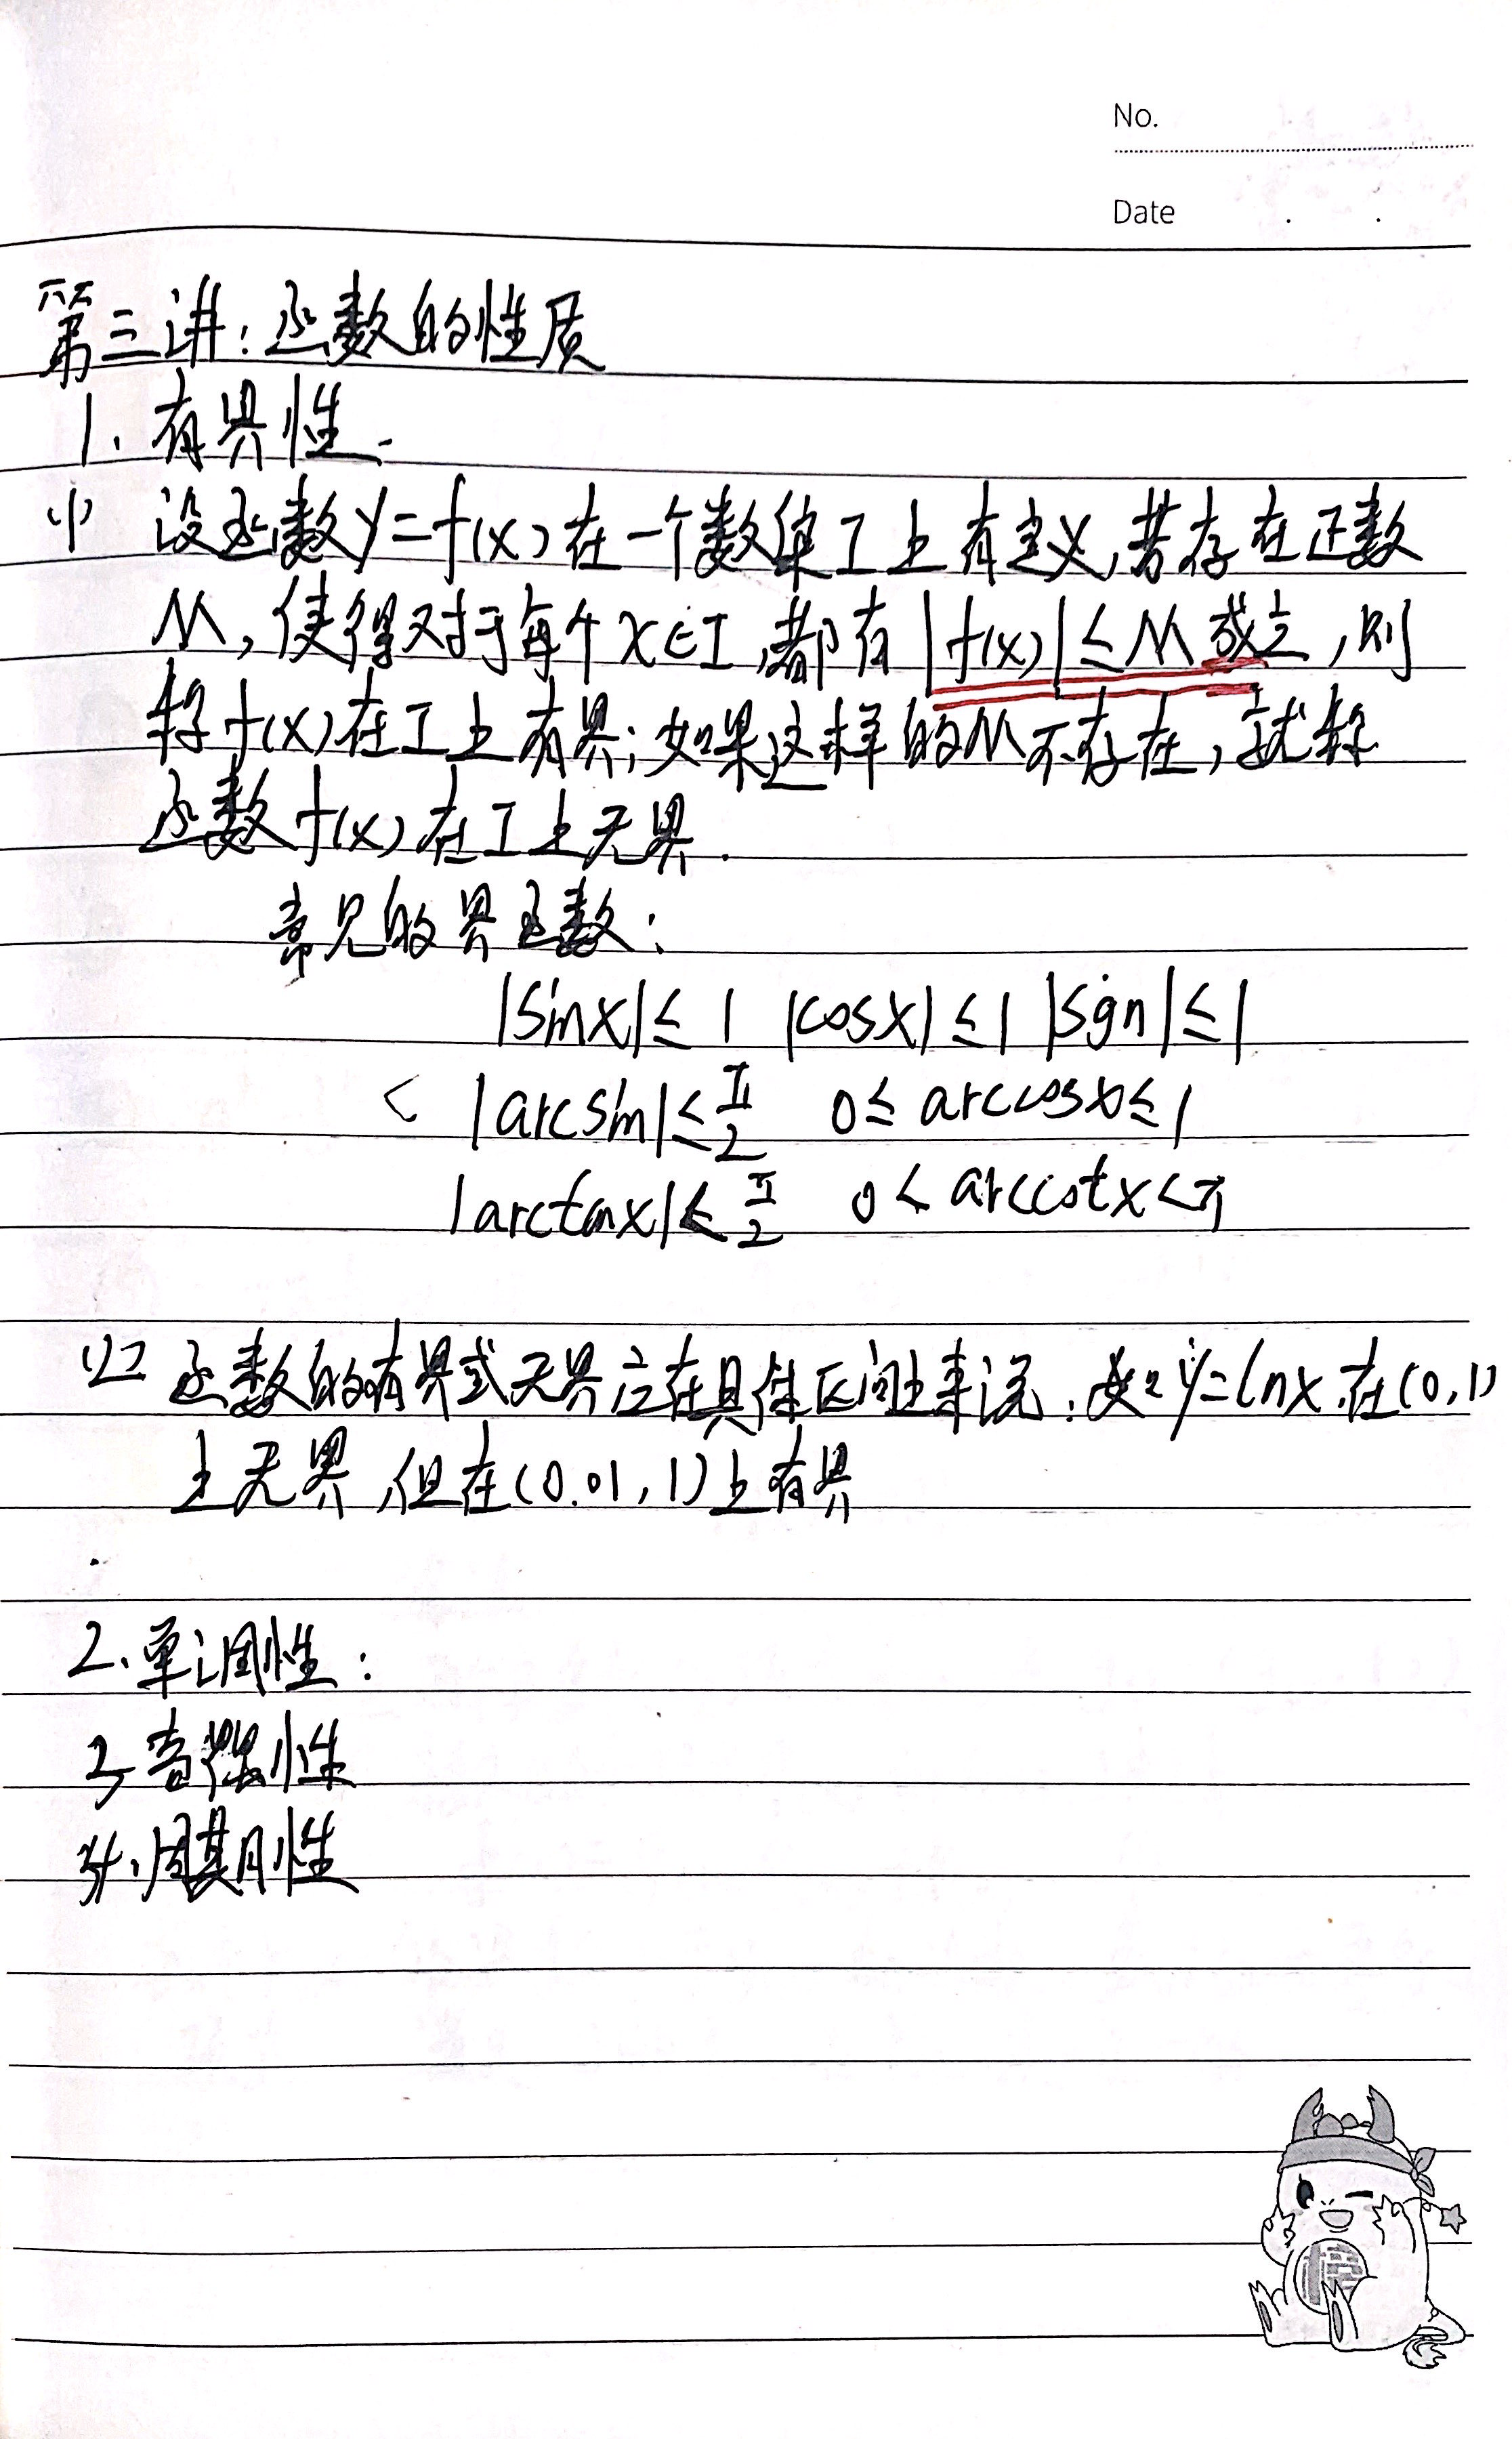 No.
Date . .
第三讲：函数的性质
1. 有界性.
(1) 设函数y=f(x)在一个数集I上有定义,若存在正数
M,使得对于每个x∈I,都有|f(x)|≤M成立,则
称f(x)在I上有界;如果这样的M不存在,就称
函数f(x)在I上无界.
常见的界函数:
|sinx|≤1 |cosx|≤1 |sgn|≤1
< |arcsin|≤π/2 0≤arccosx≤1
|arctanx|≤π/2 0<arccotx<π
(2) 函数的有界或无界应在具体区间上来说:如y=lnx在(0,1)
上无界,但在(0.01,1)上有界
2.单调性:
3.奇偶性
4.周期性